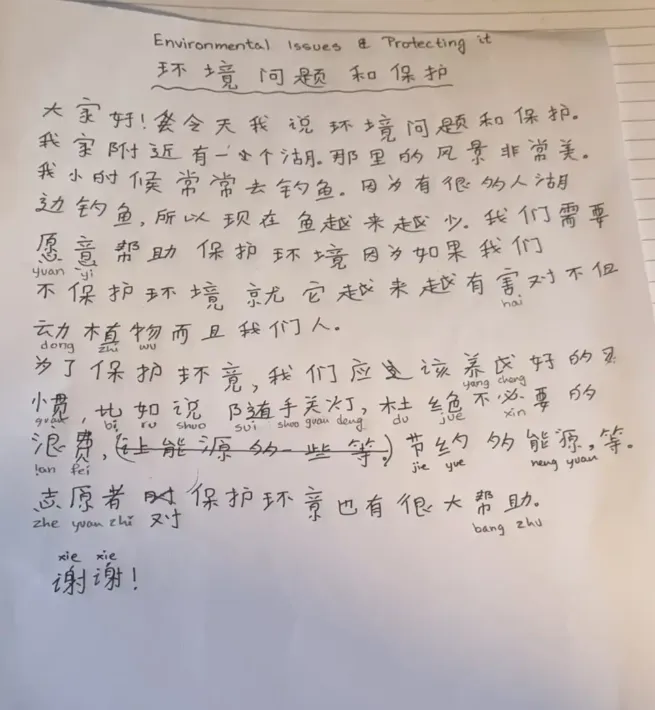 Environmental Issues & Protecting it
环境问题和保护
大家好!今天我说环境问题和保护。
我家附近有一个湖。那里的风景非常美。
我小时候常常去钓鱼。因为有很多的人湖
边钓鱼,所以现在鱼越来越少。我们需要
愿意帮助保护环境因为如果我们
yuan yi
不保护环境就它越来越有害对不但
hai
动植物而且我们人。
dong zhi wu
为了保护环境,我们应该养成好的习
yang cheng
惯,比如说随手关灯,杜绝不必要的
guan bi ru shuo sui shou guan deng du jue xin
浪费,(让能源的一些等。)节约的能源,等。
lan fei jie yue neng yuan
志愿者对保护环境也有很大帮助。
zhe yuan zhi bang zhu
xie xie
谢谢!